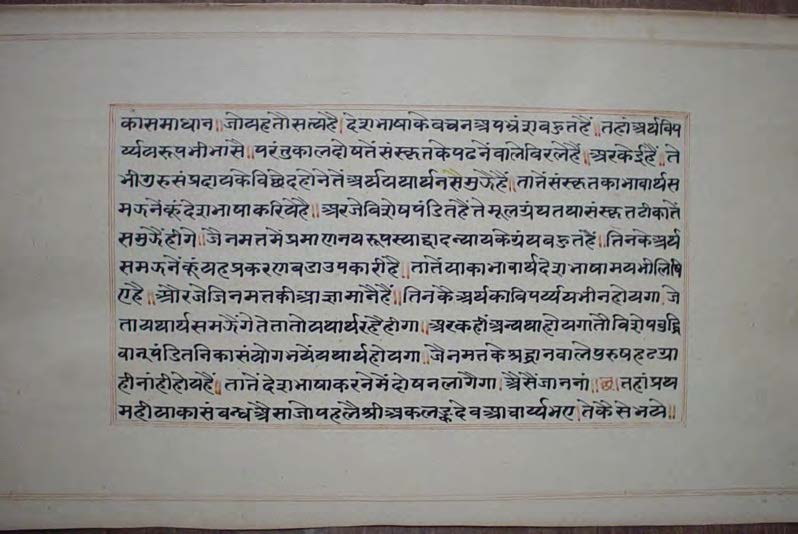 का समाधान ॥ जो यह तौ सत्य है । देशभाषा के वचन अपभ्रंश बहुत हैं ॥ तहां अर्थ विप
र्य्यय रूप भी भासै ॥ परंतु काल दोष तें संस्कृत के पढनें वाले विरले हैं ॥ अर केई हैं ॥ ते
भी गुरु संप्रदाय के विछेद होने तें अर्थ यथार्थ न समुझैं हैं ॥ तातें संस्कृत का भावार्थ स
मझनें कूं देशभाषा करिये है ॥ अर जे विशेष पंडित हैं ते मूल ग्रंथ तथा संस्कृत टीका तें
समुझैंहीगे ॥ जैनमत में प्रमाण नय रूप स्याद्वाद न्याय के ग्रंथ बहुत हैं ॥ तिनके अर्थ
समझनें कूं यह प्रकरण बडा उपकारी है ॥ तातें याका भावार्थ देशभाषामय भी लिषि
ए है ॥ और जे जिनमत की आज्ञा मानै हैं ॥ तिनकै अर्थ का विपर्य्यय भी न होयगा । जे
ता यथार्थ समझैंगे तेता तो यथार्थ रहैहीगा ॥ अर कहीं अन्यथा होयगा तौ विशेष बुद्धि
वान् पंडितनि का संयोग भयें यथार्थ होयगा ॥ जैनमत के श्रद्धान वाले पुरुष हठग्रा
ही नांही होय हैं ॥ तातें देशभाषा करनें में दोष न लागैगा । अैसैं जाननां ॥ छ ॥ तहां प्रथ
म ही याका संबन्ध अैसा जो पहलै श्री अकलङ्कदेव आचार्य्य भए । ते कैसे भये ॥